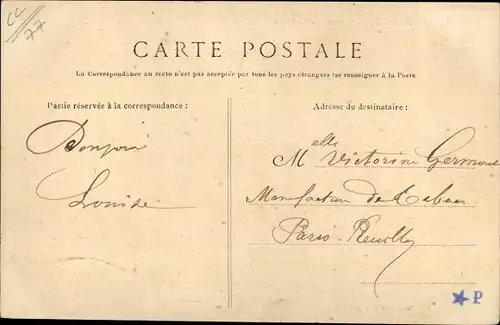 CC
77
CARTE POSTALE
La Correspondance au recto n'est pas acceptée par tous les pays étrangers (se renseigner à la Poste
Partie réservée à la correspondance :
Adresse du destinataire :
Bonjour
Louise
Melle Victorine Germond
Manufacture de Tabac
Paris-Reuilly
★ P